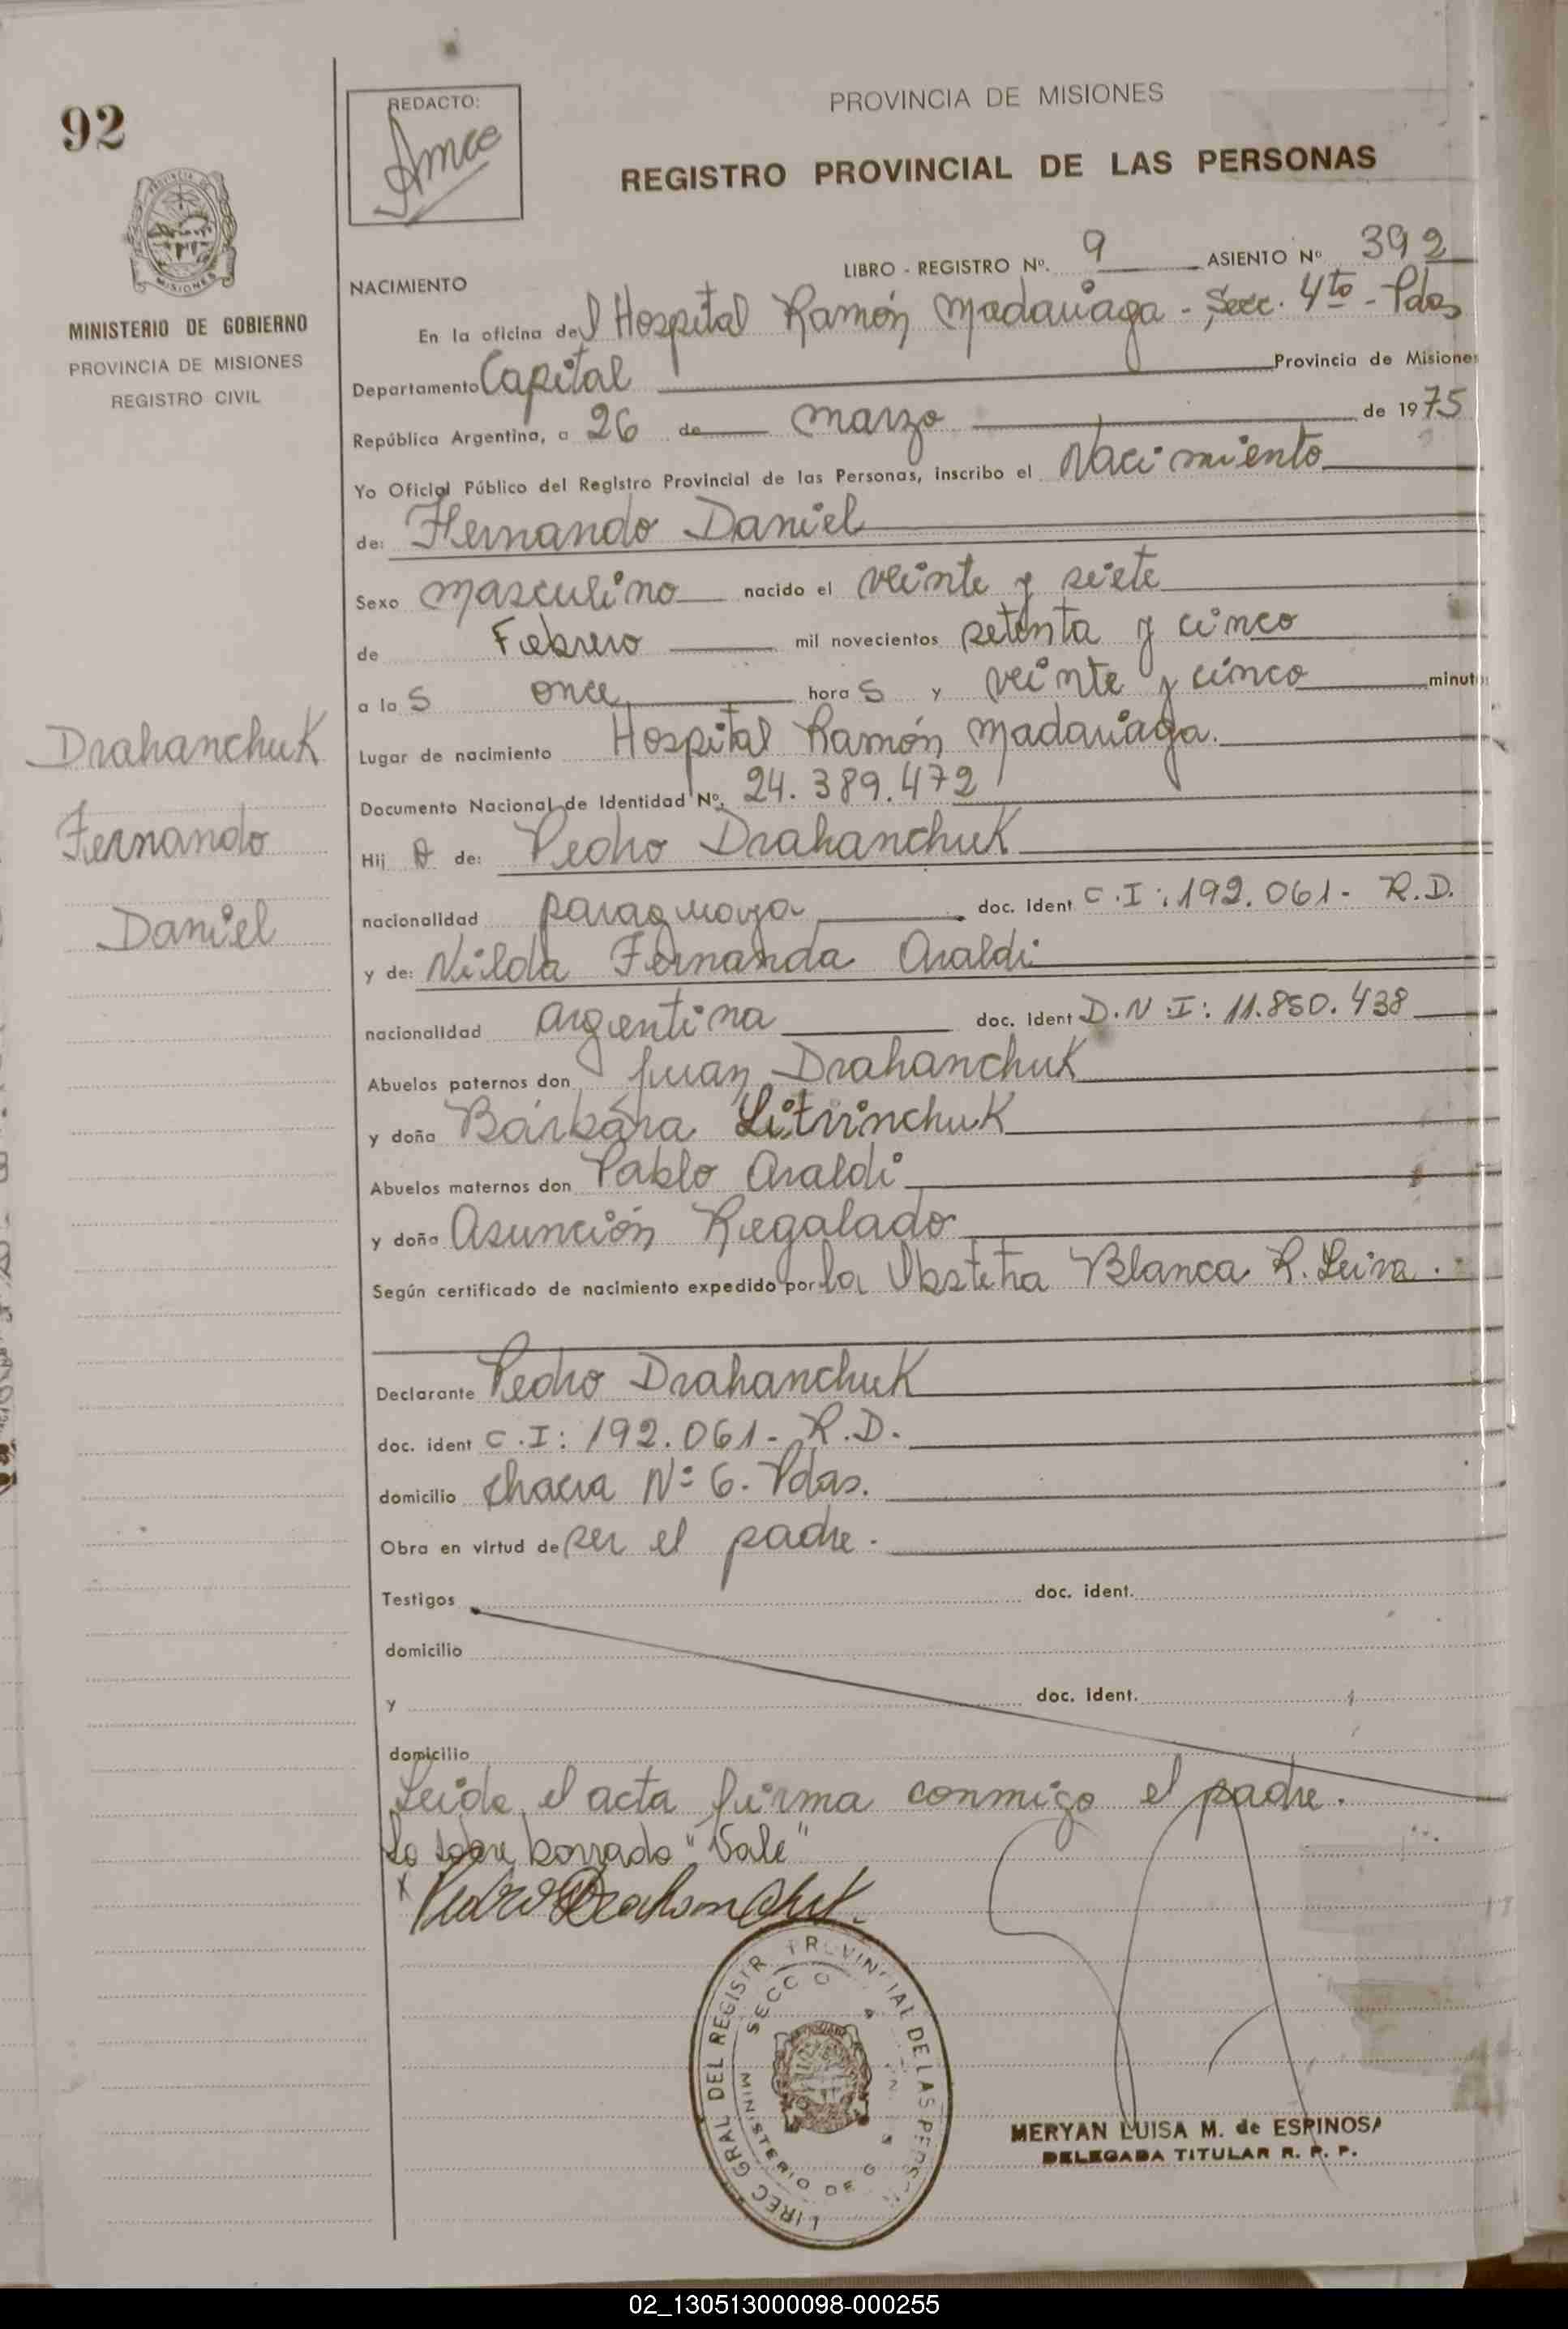 92
REDACTO:
PROVINCIA DE MISIONES
REGISTRO PROVINCIAL DE LAS PERSONAS
MISIONES
MINISTERIO DE GOBIERNO
PROVINCIA DE MISIONES
REGISTRO CIVIL
LIBRO - REGISTRO Nº. 9 ASIENTO Nº 392
NACIMIENTO
En la oficina del Hospital Ramón Madariaga - Secc. 4to - Pdas
Departamento Capital Provincia de Misiones
República Argentina, a 26 de marzo de 1975
Yo Oficial Público del Registro Provincial de las Personas, inscribo el Nacimiento
de: Fernando Daniel
Sexo masculino nacido el veinte y siete
de Febrero mil novecientos setenta y cinco
a las once horas y veinte y cinco minuto
Drahanchuk
Fernando
Daniel
Lugar de nacimiento Hospital Ramón Madariaga.
Documento Nacional de Identidad Nº. 24.389.472
Hijo de: Pedro Drahanchuk
nacionalidad paraguaya doc. ident C.I: 192.061- R.D.
y de: Nilda Fernanda Araldi
nacionalidad argentina doc. ident D.N.I: 11.850.438
Abuelos paternos don Juan Drahanchuk
y doña Bárbara Litvinchuk
Abuelos maternos don Pablo Araldi
y doña Asunción Regalado
Según certificado de nacimiento expedido por la Obstetra Blanca R. Leiva.
Declarante Pedro Drahanchuk
doc. ident C.I: 192.061- R.D.
domicilio chacra Nº 6. Pdas.
Obra en virtud de ser el padre.
Testigos doc. ident.
domicilio
y doc. ident.
domicilio
Leida el acta firma conmigo el padre.
Lo sobre borrado "Vale"
x Pedro Drahanchuk.
DIREC GRAL DEL REGISTR PROVINCIAL DE LAS PERSON
MINISTERIO DE
MERYAN LUISA M. de ESPINOSA
DELEGADA TITULAR R. P. P.
02_130513000098-000255